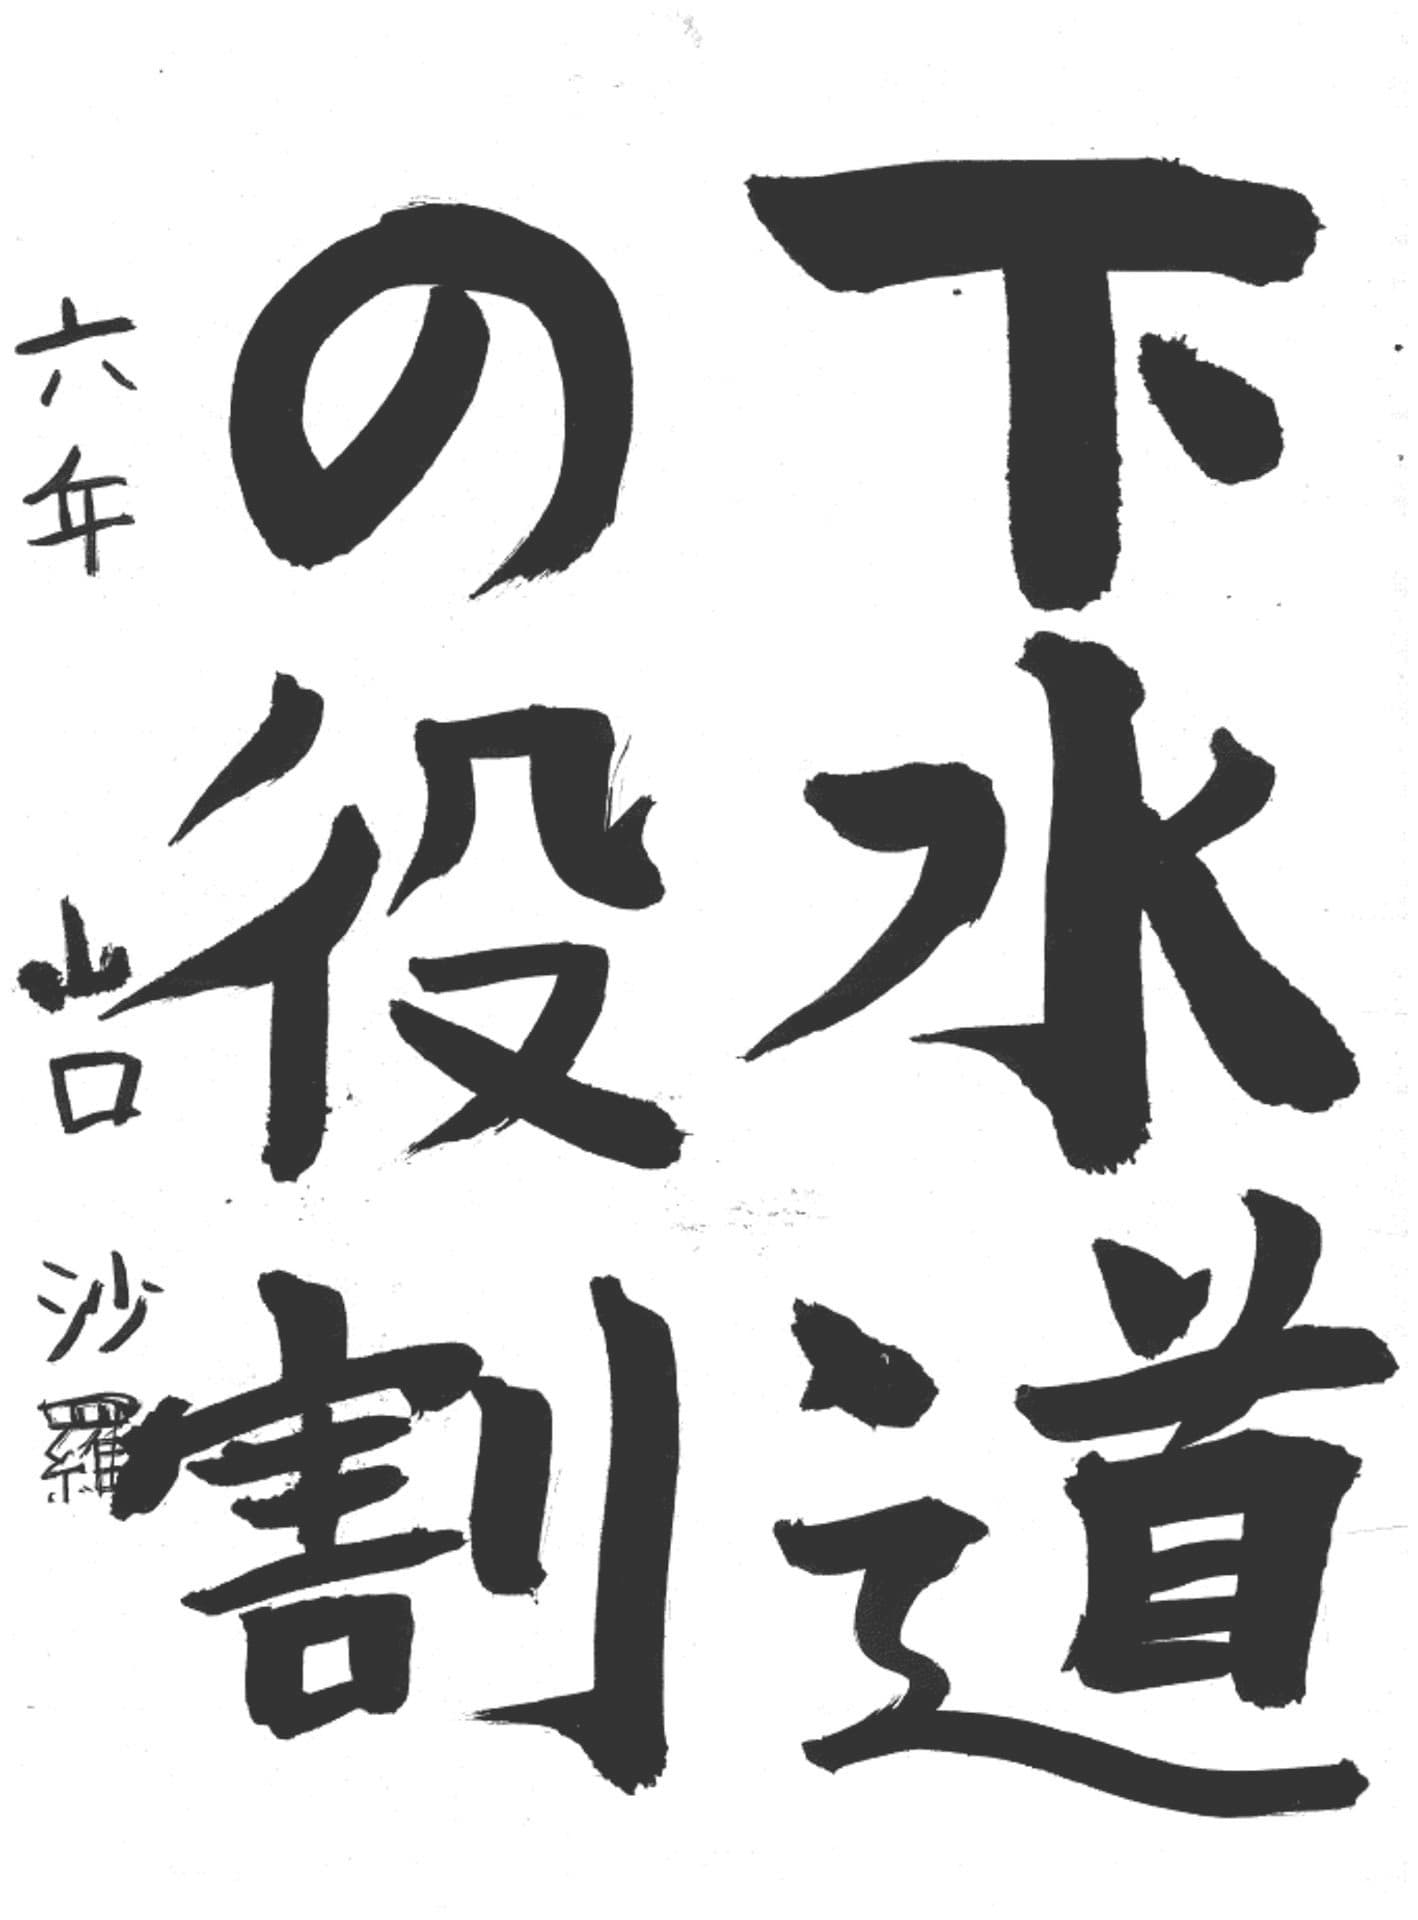 下水道
の役割
六年 山口 沙羅